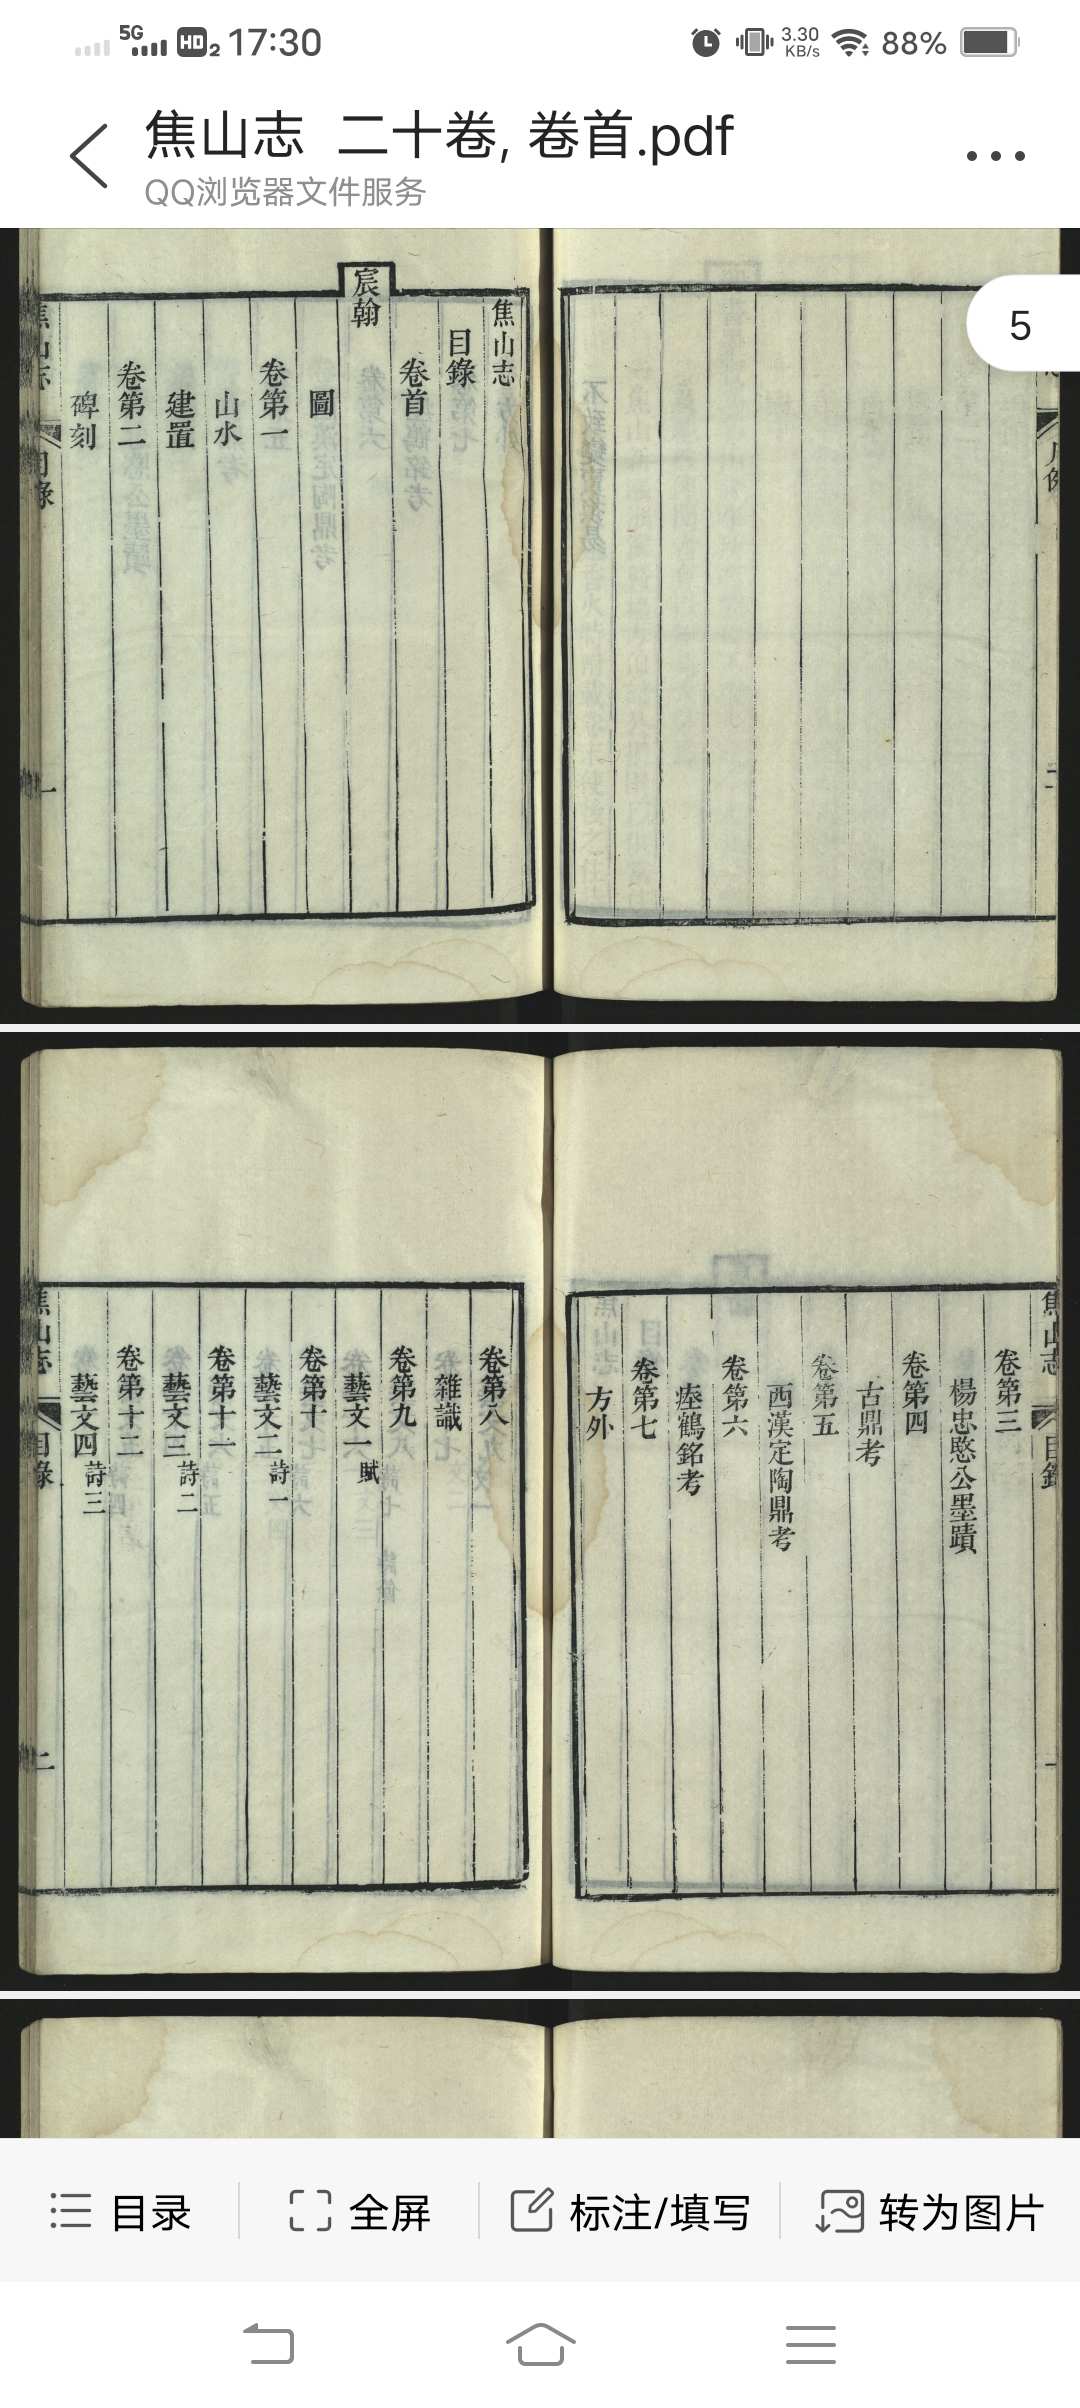 5G HD 2 17:30 3.30 KB/s 88%
焦山志 二十卷, 卷首.pdf
QQ浏览器文件服务
5
焦山志
目錄
卷首
宸翰
圖
卷第一
山水
建置
卷第二
碑刻
焦山志 目錄 一
焦山志 目錄 一
卷第三
楊忠愍公墨蹟
卷第四
古鼎考
卷第五
西漢定陶鼎考
卷第六
瘞鶴銘考
卷第七
方外
卷第八
雜識
卷第九
藝文一 賦
卷第十
藝文二 詩一
卷第十一
藝文三 詩二
卷第十二
藝文四 詩三
焦山志 目錄 二
目录
全屏
标注/填写
转为图片